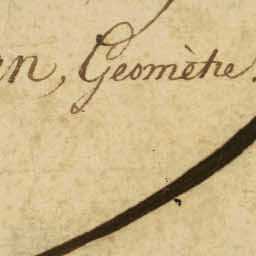 en, Geomètre.